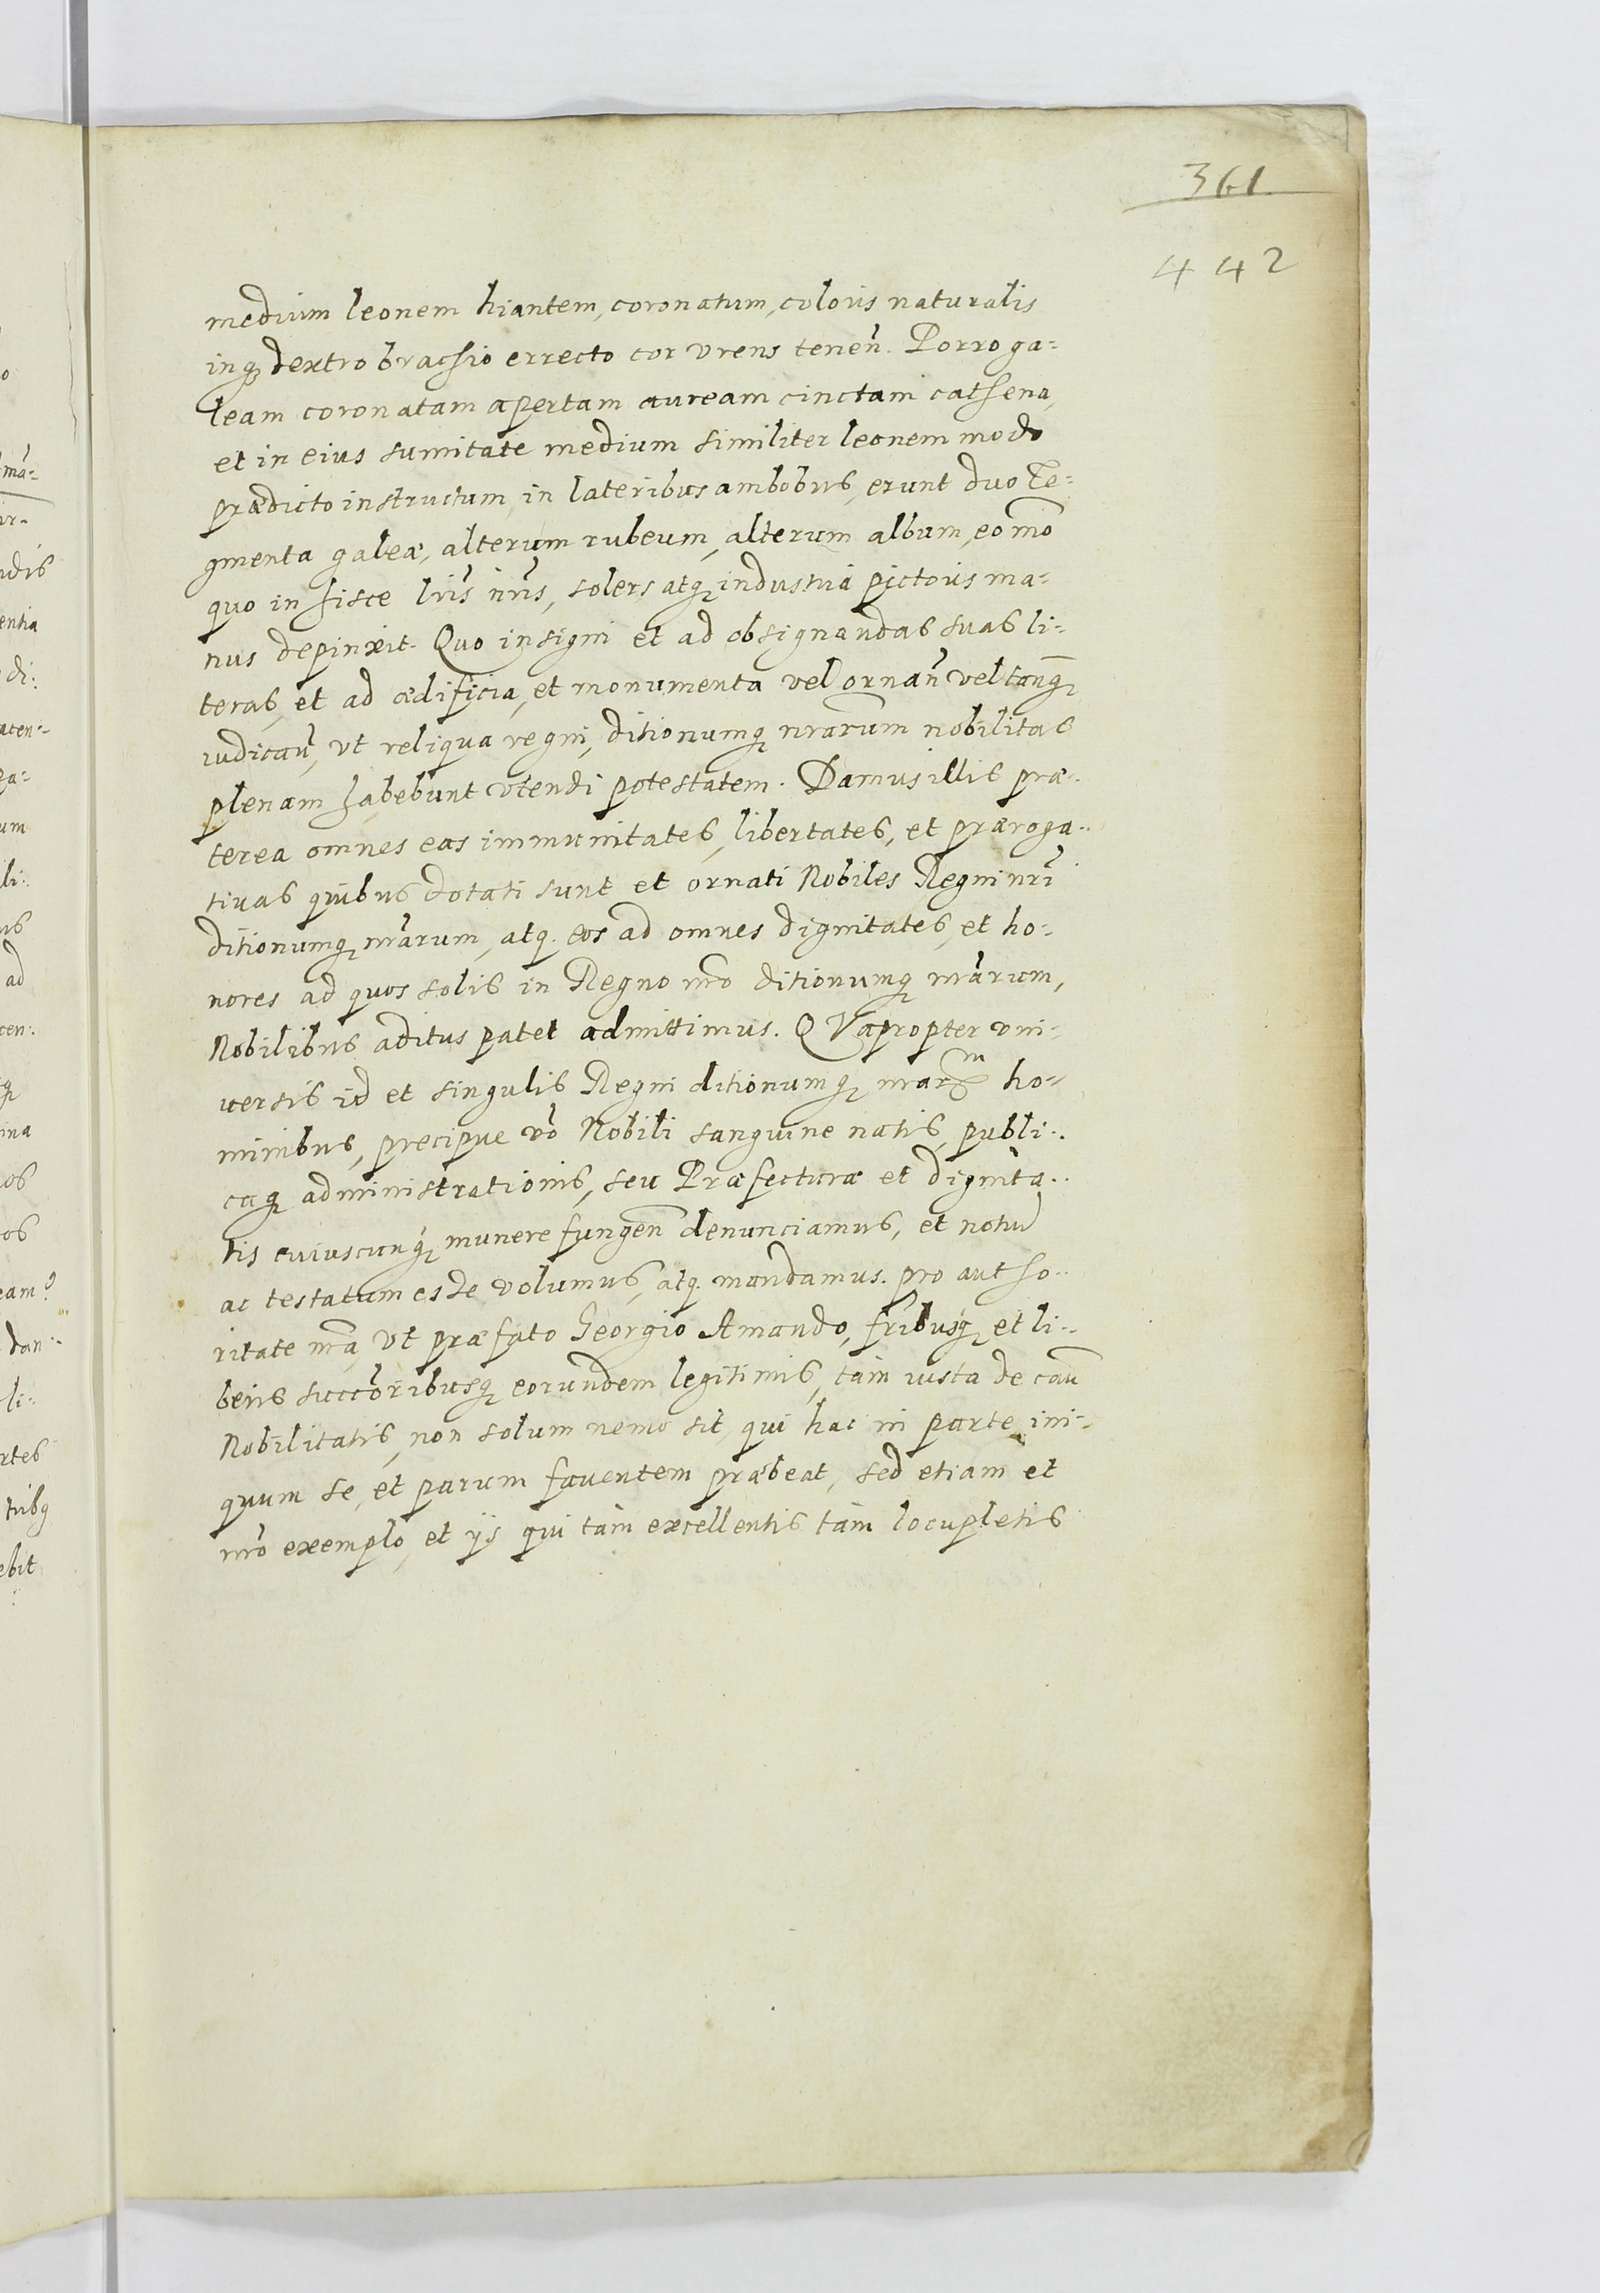 361
442
medium leonem hiantem, coronatum, coloris naturalis
inq; dextro brachio errecto cor vrens tenen̄. Porro ga-
leam coronatam apertam auream cinctam cathena,
et in eius sumitate medium similiter leonem modo
prædicto instructum, in lateribus ambobus, erunt duo te-
gmenta galeæ, alterum rubeum, alterum album, eo mo᷑
quo in hisce lr̄is nr̄is, solers atq; industria pictoris ma-
nus depinxit. Quo insigni et ad obsignandas suas li-
teras, et ad ædificia, et monumenta vel ornan̄ vel tanq̄;
iudican̄, vt reliqua regni, ditionumq; nr̄arum nobilitas
plenam habebunt vtendi potestatem. Damus illis præ-
terea omnes eas immunitates, libertates, et præroga-
tiuas quibus dotati sunt et ornati Nobiles Regni nr̄i
ditionumq; nr̄arum, atq. eos ad omnes dignitates, et ho-
nores ad quos solis in Regno nr̄o ditionumq; nr̄arum,
Nobilibus aditus patet admittimus. QVapropter vni-
uersis id et singulis Regni ditionumq; nr̄arm ho-
minibus, precipue vō Nobili sanguine natis, publi-
caq; administrationis, seu Præfecturæ et dignita-
tis cuiuscunq; munere fungen̄ denunciamus, et notū
ac testatum esse volumus, atq. mandamus. pro autho-
ritate nr̄a, vt præfato Georgio Amando, fr̄ibusq; et li-
beris succōribusq; eorundem legitimis, tam iusta de cau᷑
Nobilitatis, non solum nemo sit, qui hac in parte ini-
quum se, et parum fauentem præbeat, sed etiam et
nr̄o exemplo, et ijs qui tam excellentis tam locupletis